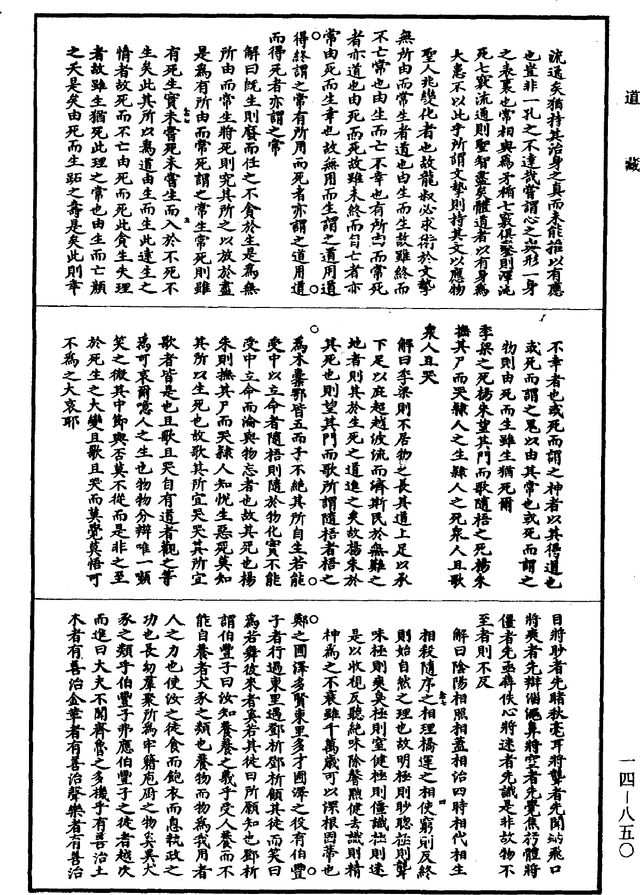 道藏
流通矣猶持其治身之真而未能搭以有應
也豈非一孔之不達哉嘗謂心之與形一身
之表裏也常相與為矛楯七竅俱鑿則渾沌
死七竅流通則聖智盡矣體道者以有身為
大患不以此乎所謂文摯則持其文以應物
聖人兆變化者也故龍叔必求術於文摯
無所由而常生者道也由生而生故雖終而
不亡常也由生而亡不幸也有所由而常死
者亦道也由死而死故雖未終而自亡者亦
常由死而生幸也故無用而生謂之道用道
得終謂之常有所用而死者亦謂之道用道
而得死者亦謂之常
解曰旣生則廢而任之不貪於生是為無
所由而常生將死則究其所之以放於盡
是為有所由而常死謂之常生常死則雖
有死生實未嘗死未嘗生而入於不死不
生矣此其所以為道由生而生此達生之
情者故死而不亡由死而死此貪生失理
者故雖生猶死此理之常也由生而亡顏
之夭是矣由死而生跖之壽是矣此則幸
不幸者也或死而謂之神者以其得道也
或死而謂之鬼以由其常也或死而謂之
物則由死而生雖生猶死爾
季梁之死楊朱望其門而歌隨梧之死楊朱
撫其尸而哭隸人之生隸人之死衆人且歌
衆人且哭
解曰季梁則不居物之長其道上足以承
下足以庇超越波流而濟斯民於無難之
地者則其於生死之道進之矣故楊朱於
其死也則望其門而歌所謂隨梧者梧之
為木橐鄂皆五而子不絶其所自生若能
受中以立命者隨梧則隨於物化實不能
受中立命而淪與物忘者也故其死也楊
朱則撫其尸而哭隸人知恱生惡死莫知
其所以生死也故歌其所宜哭哭其所宜
歌者皆是也且歌且哭自有道者觀之等
為可哀爾噫人之生也物物分辯唯一嚬
笑之微其中節與否莫不從而是非之至
於死生之大變且歌且哭而莫覺莫悟可
不為之大哀耶
目將眇者先睹秋毫耳將聾者先聞蚋飛口
將爽者先辯淄澠鼻將窒者先覺焦朽體將
僵者先亟犇佚心將迷者先識是非故物不
至者則不反
解曰陰陽相照相蓋相治四時相代相生
相殺隨序之相理橋運之相使窮則反終
則始自然之理也故明極則眇聰極則聾
味極則爽臭極則窒健極則僵識極則迷
是以收視反聽絶味除馨黜健去識則精
神為之不衰雖千萬歲可以深根固蔕也
鄭之圃澤多賢東里多才圃澤之役有伯豐
子者行過東里遇鄧析鄧析顧其徒而笑曰
為若舞彼來者奚若其徒曰所願知也鄧析
謂伯豐子曰汝知養養之義乎受人養而不
能自養者犬豕之類也養物而物為我用者
人之力也使汝之徒食而飽衣而息執政之
功也長幼羣聚所為牢籍庖廚之物奚異犬
豕之類乎伯豐子弗應伯豐子之從者越次
而進曰大夫不聞齊魯之多機乎有善治土
木者有善治金革者有善治聲樂者有善治
一四—八五〇